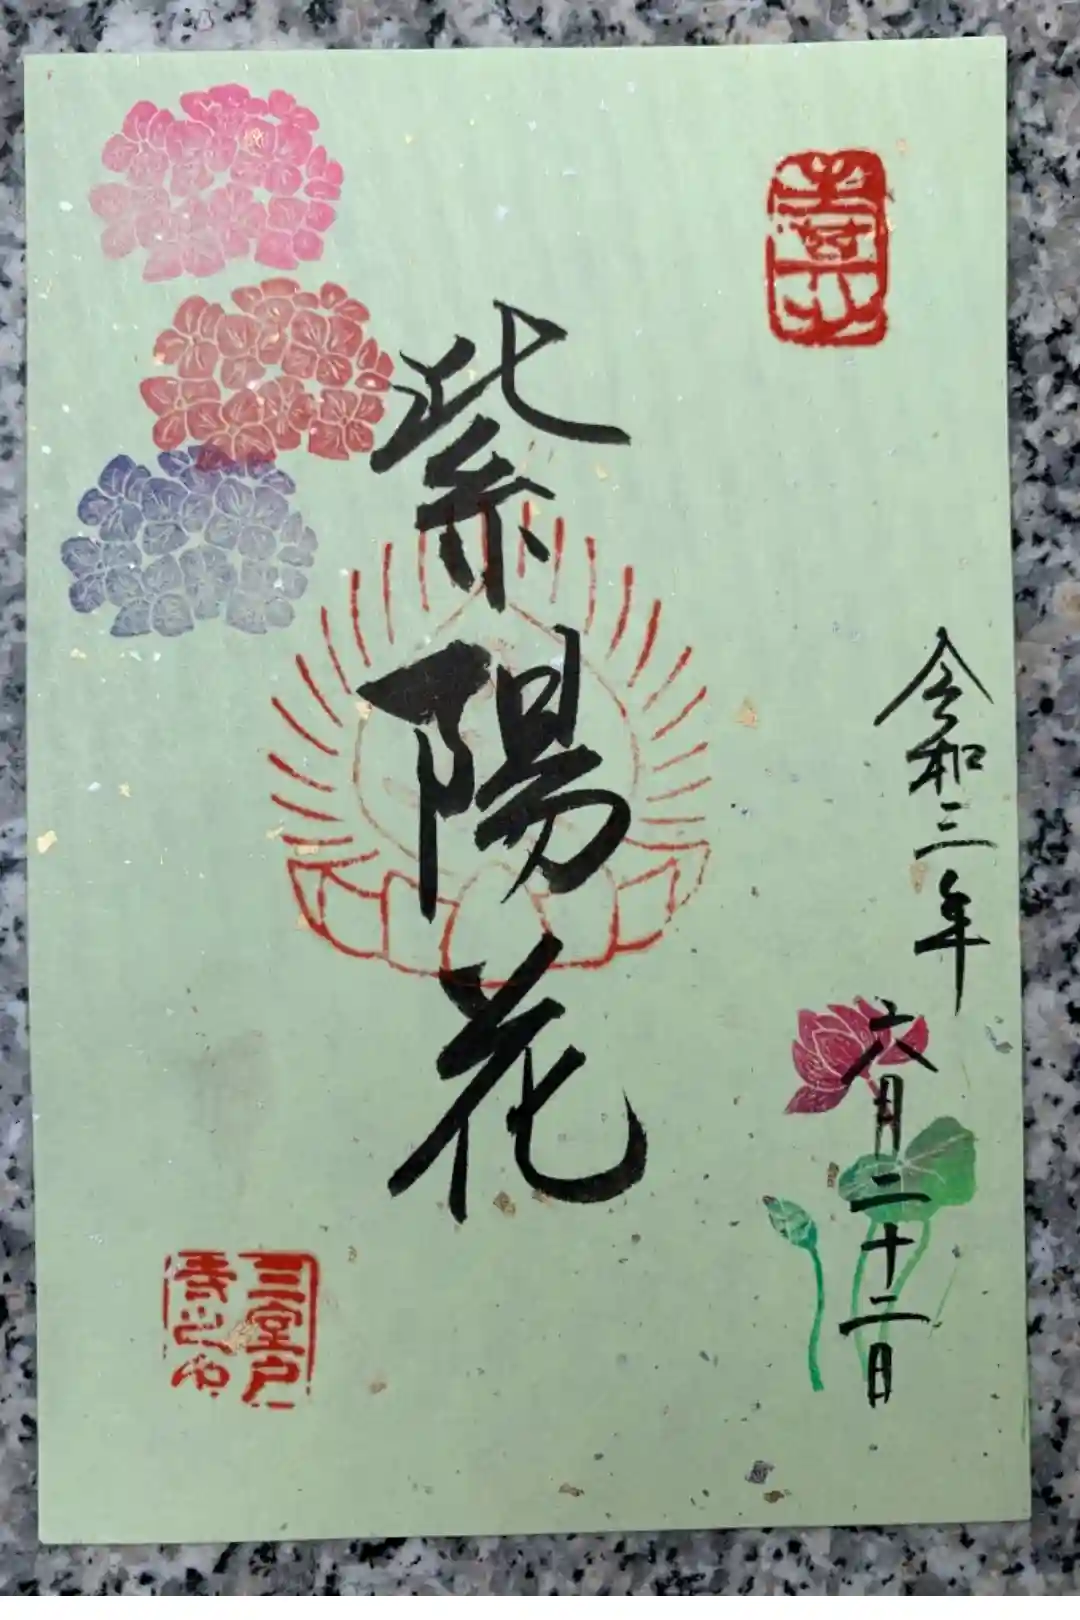 令和三年
六月二十二日
紫陽花
三室戸
寺之印